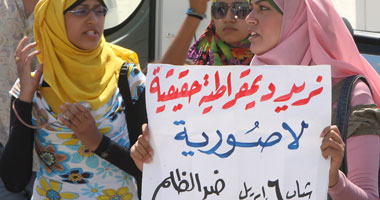 نريد ديمقراطية حقيقية
لا صورية
شباب 6 ابريل ضد الظلم